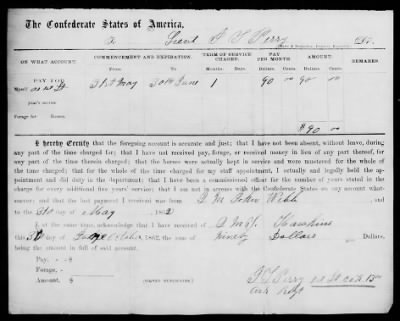 The Confederate States of America,
To Lieut. Perry
ON WHAT ACCOUNT. COMMENCEMENT AND EXPIRATION. TERM OF SERVICE CHARGED. PAY PER MONTH AMOUNT. REMARKS.
From To Months. Days. Dollars. Cents. Dollars. Cents.
PAY FOR
Myself 31st May 30th June 1 90 00 90 00
year's service
Forage for Horses.
$ 90 00
I hereby Certify that the foregoing account is accurate and just; that I have not been absent, without leave, during
any part of the time charged for; that I have not received pay, forage, or received money in lieu of any part thereof, for
any part of the time therein charged; that the horses were actually kept in service and were mustered for the whole of
the time charged; that for the whole of the time charged for my staff appointment, I actually and legally held the ap-
pointment and did duty in the department; that I have been a commissioned officer for the number of years stated in the
charge for every additional five years' service; that I am not in arrears with the Confederate States on any account what-
soever; and that the last payment I received was from and to
the 31st day of May 1862
At the same time, acknowledge that I have received of Hawkins
this day of October 1862 the sum of ninety Dollars Dollars,
being the amount in full of said account.
Pay, - - $
Forage, -
Amount, $ (SIGNED DUPLICATES)
Perry